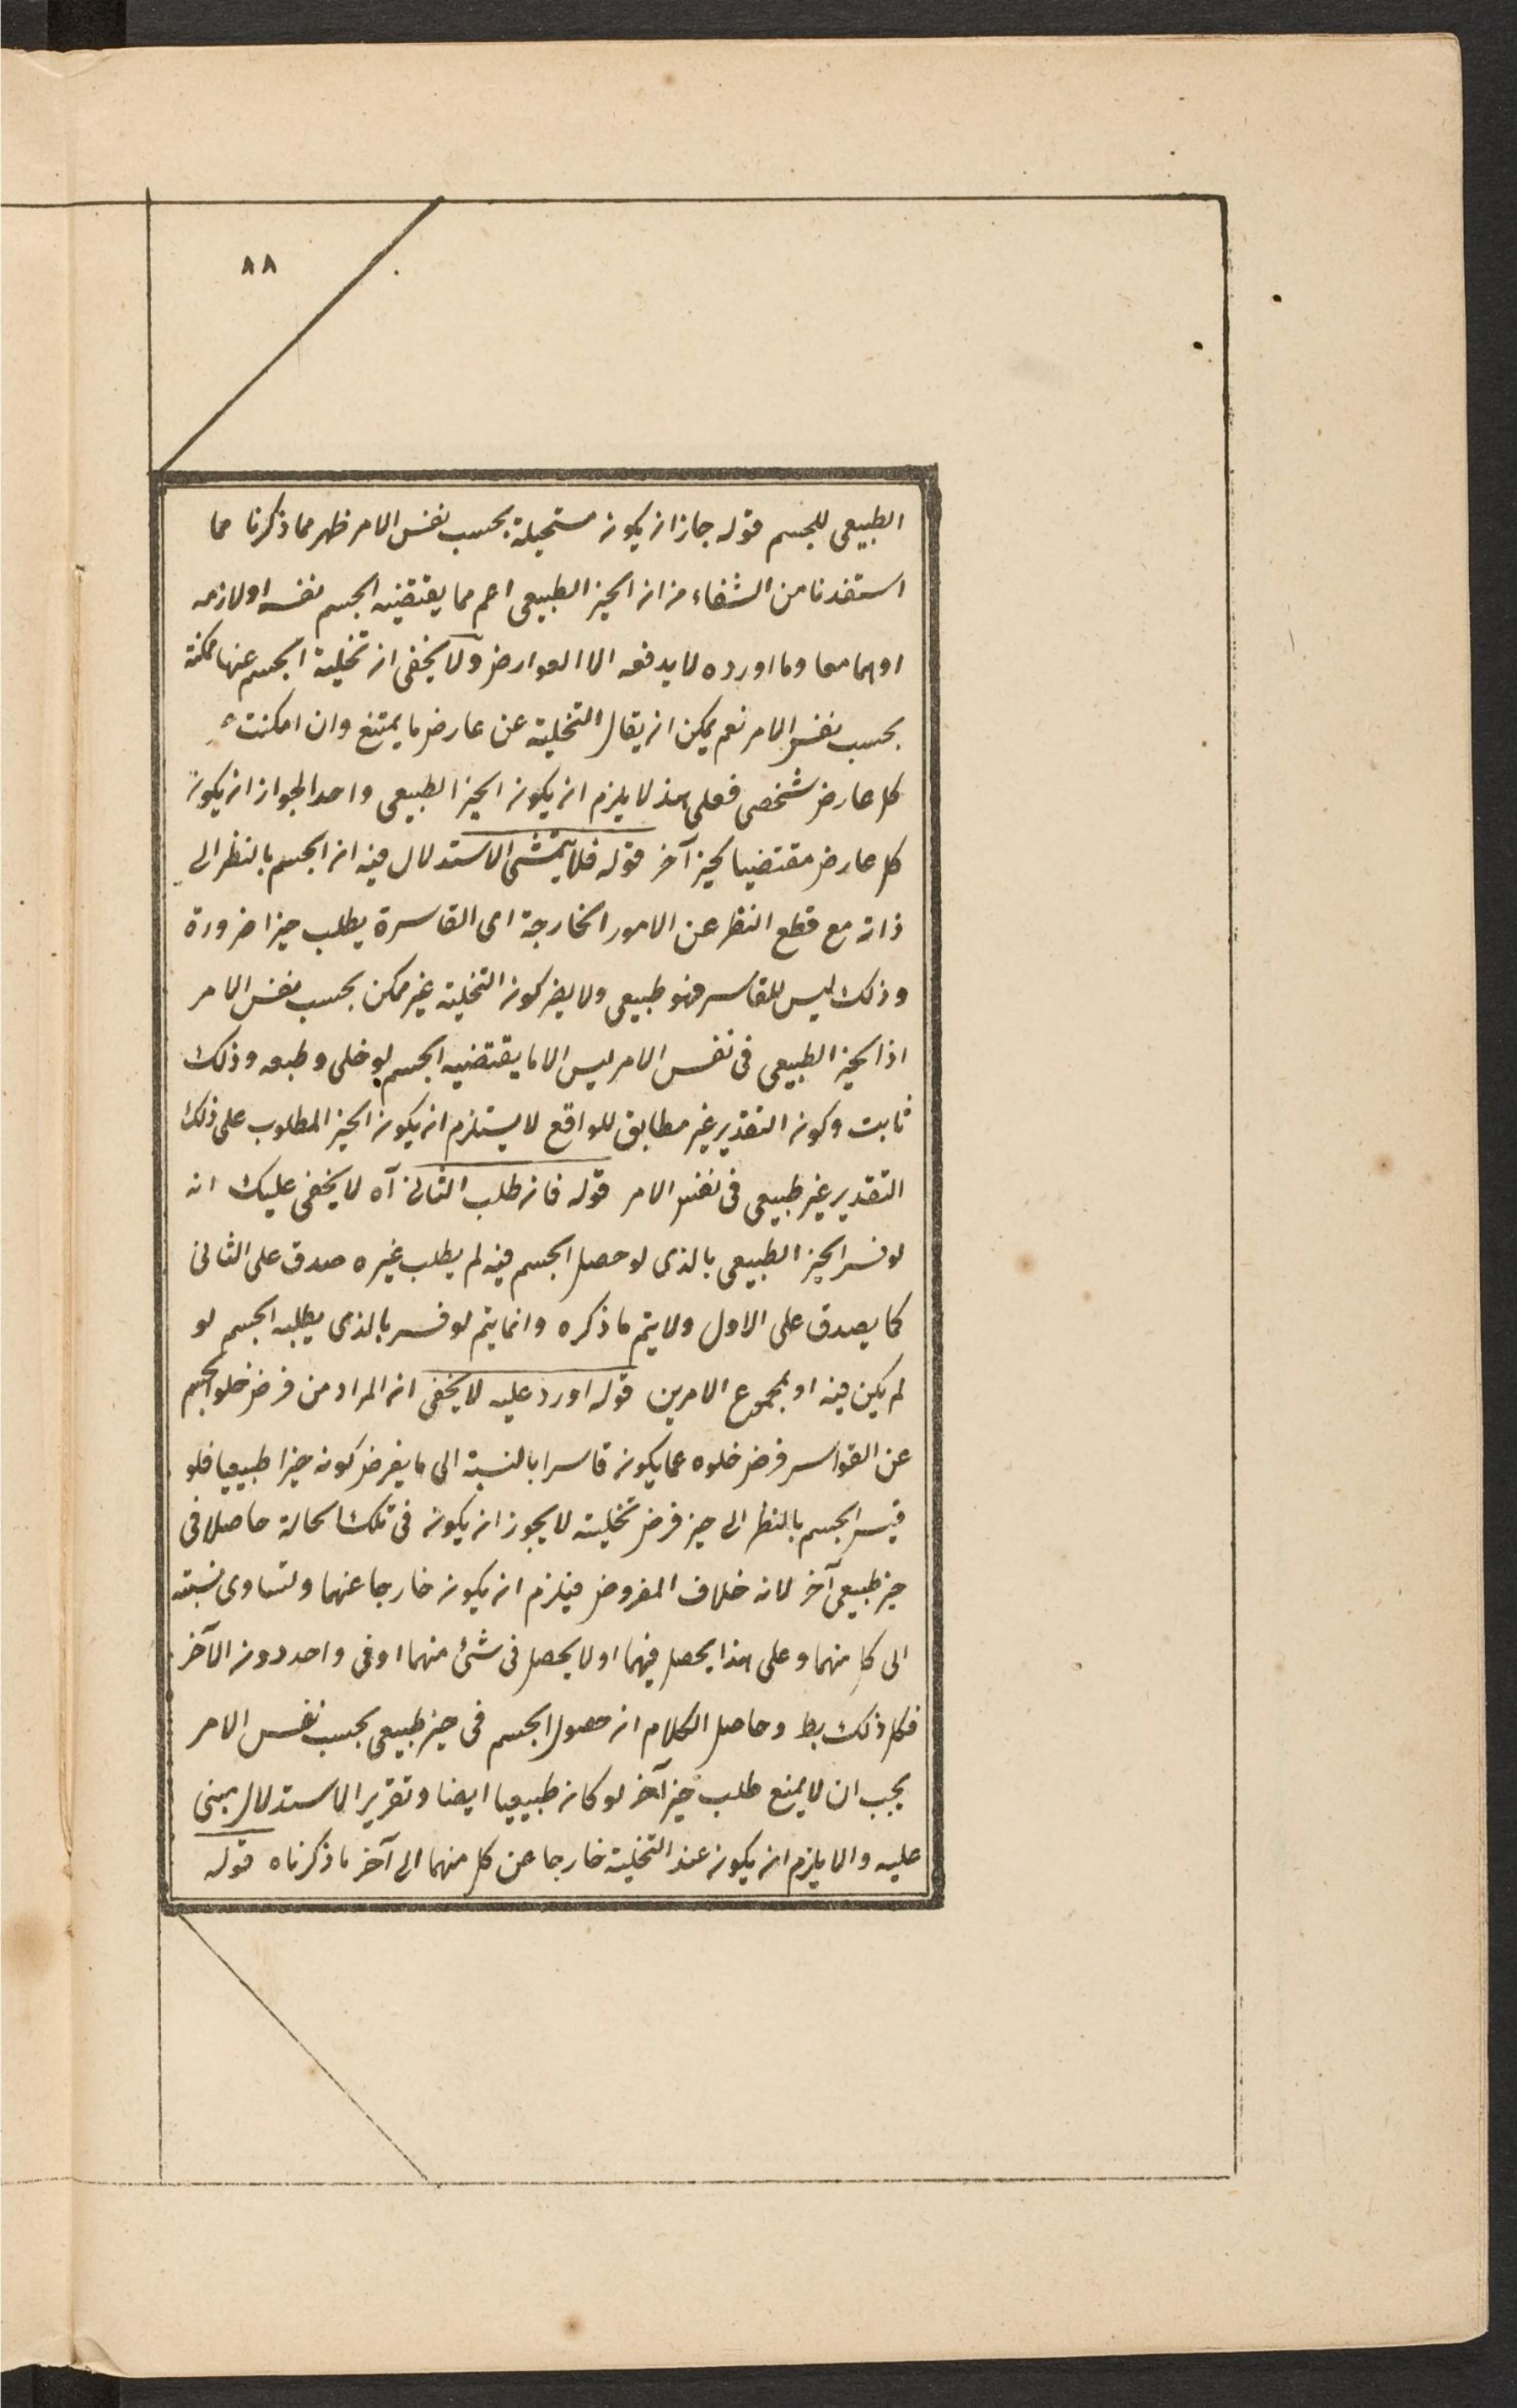 ٨٨
الطبيعى للجسم قوله جاز ان يكون مستحيلة بحسب نفس الامر ظهر مما ذكرنا مما
استفدنا من الشفاء من ان الحيز الطبيعى اعم مما يقتضيه الجسم نفسه او لازمه
او هما معا وما اورده لا يدفعه الا العوارض ولا يخفى ان تخلية الجسم عنها ممكنة
بحسب نفس الامر نعم يمكن ان يقال التخلية عن عارض ما يمتنع وان امكنت
كل عارض شخصى فعلى هذا لا يلزم ان يكون الحيز الطبيعى واحدا لجواز ان يكون
كل عارض مقتضيا لحيز آخر قوله فلا يتمشى الاستدلال فيه ان الجسم بالنظر الى
ذاته مع قطع النظر عن الامور الخارجة اى القاسرة يطلب حيزا ضرورة
وذلك ليس للقاسر فهو طبيعى ولا يضر كون التخلية غير ممكن بحسب نفس الامر
اذ الحيز الطبيعى فى نفس الامر ليس الا ما يقتضيه الجسم لو خلى وطبعه وذلك
ثابت وكون التقدير غير مطابق للواقع لا يستلزم ان يكون الحيز المطلوب على ذلك
التقدير غير طبيعى فى نفس الامر قوله فان طلب الثانى آه لا يخفى عليك انه
لو فسر الحيز الطبيعى بالذى لو حصل الجسم فيه لم يطلب غيره صدق على الثانى
كما يصدق على الاول ولا يتم ما ذكره وانما يتم لو فسر بالذى يطلبه الجسم لو
لم يكن فيه او بمجموع الامرين قوله اورد عليه لا يخفى ان المراد من فرض خلو الجسم
عن القواسر فرض خلوه عما يكون قاسرا بالنسبة الى ما يفرض كونه حيزا طبيعيا فلو
قيس الجسم بالنظر الى حيز فرض تخليته لا يجوز ان يكون فى تلك الحالة حاصلا فى
حيز طبيعى آخر لانه خلاف المفروض فيلزم ان يكون خارجا عنهما ولتساوى نسبته
الى كل منهما وعلى هذا يحصل فيهما او لا يحصل فى شئ منهما او فى واحد دون الآخر
فكل ذلك بط وحاصل الكلام ان حصول الجسم فى حيز طبيعى بحسب نفس الامر
يجب ان لا يمنع طلب حيز آخر لو كان طبيعيا ايضا وتقرير الاستدلال مبنى
عليه والا يلزم ان يكون عند التخلية خارجا عن كل منهما الى آخر ما ذكرناه قوله